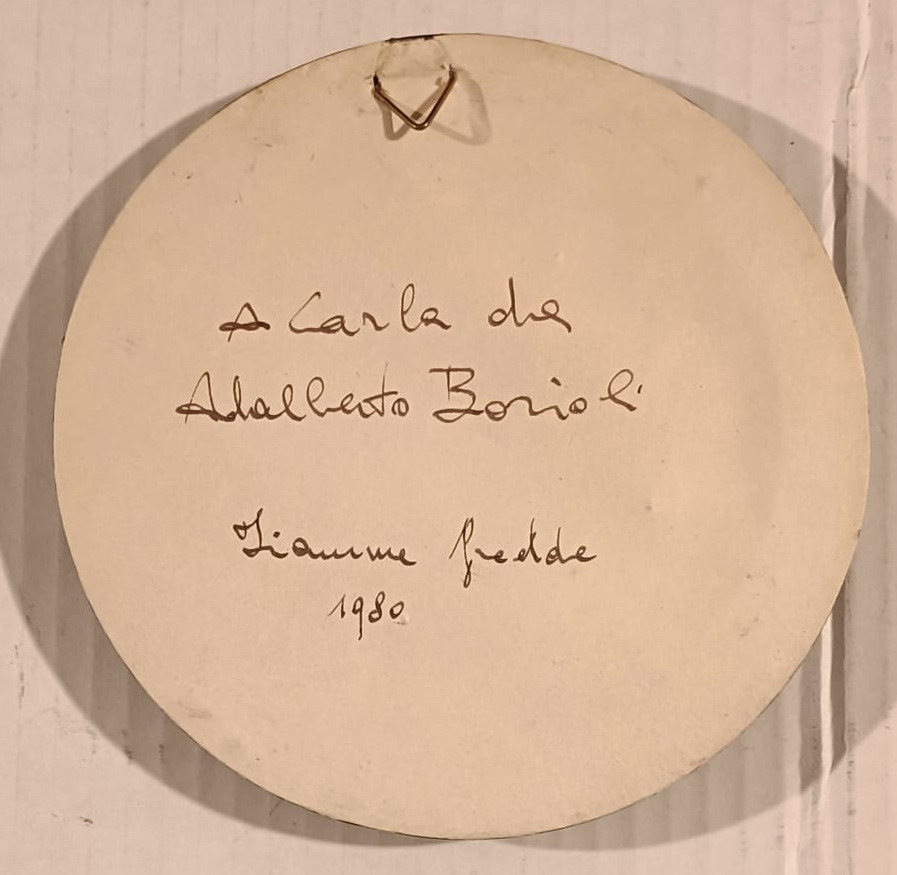 A Carla da
Adalberto Borioli
Fiamme fredde
1980